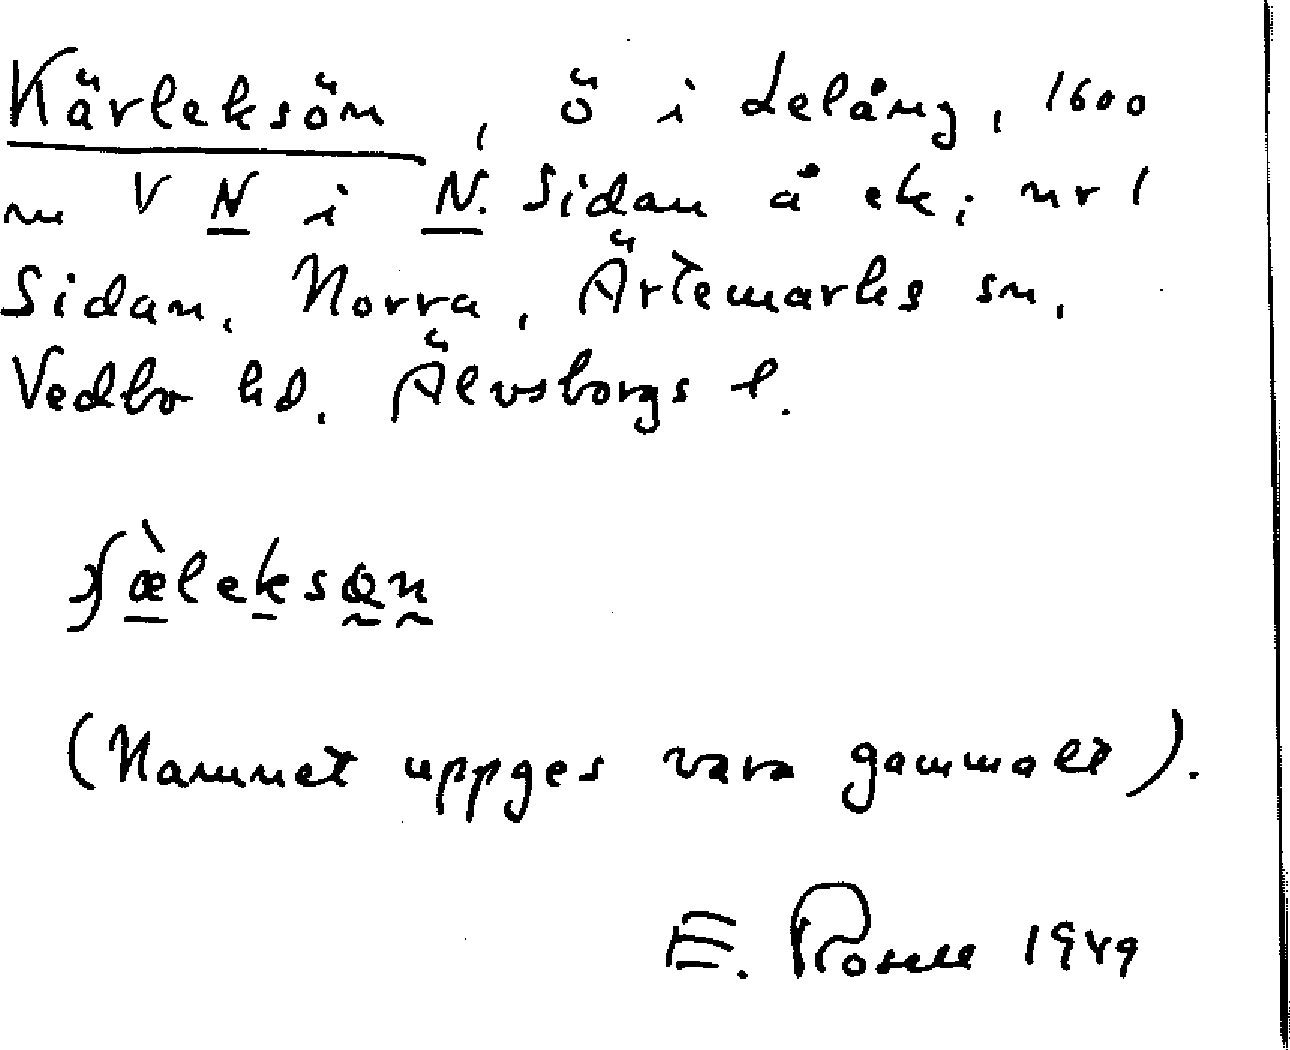 Kärleksön, ö i Lelång, 1600
m V N i N. Sidan å ek; nr 1
Sidan, Norra, Ärtemarks sn,
Vedbo hd. Älvsborgs l.
(Namnet uppges vara gammalt).
E. 1949